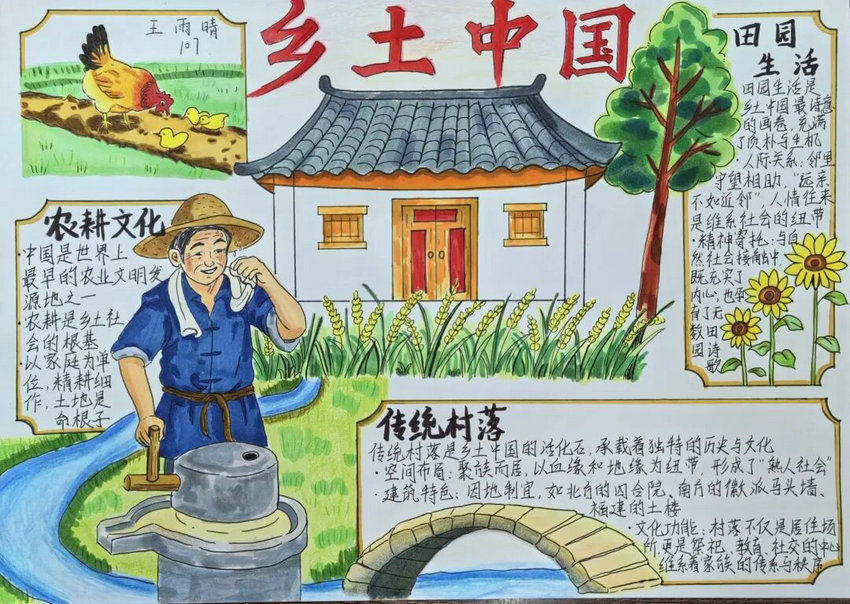 王雨晴
107
乡土中国
田园
生活
田园生活是
乡土中国最诗意
的画卷,充满
了质朴与生机
·人际关系:邻里
守望相助,"远亲
不如近邻",人情往来
是维系社会的纽带
·精神寄托:与自
然社会接触中,
既充实了
内心,也孕
育了无
数田
园诗
歌
农耕文化
·中国是世界上
最早的农业文明发
源地之一
·农耕是乡土社
会的根基
·以家庭为单
位,精耕细
作,土地是
命根子
传统村落
传统村落是乡土中国的活化石,承载着独特的历史与文化
·空间布局:聚族而居,以血缘和地缘为纽带,形成了"熟人社会"
·建筑特色:因地制宜,如北方的四合院、南方的徽派马头墙、
福建的土楼
·文化功能:村落不仅是居住场
所,更是祭祀、教育、社交的中心
维系着家族的传系与秩序